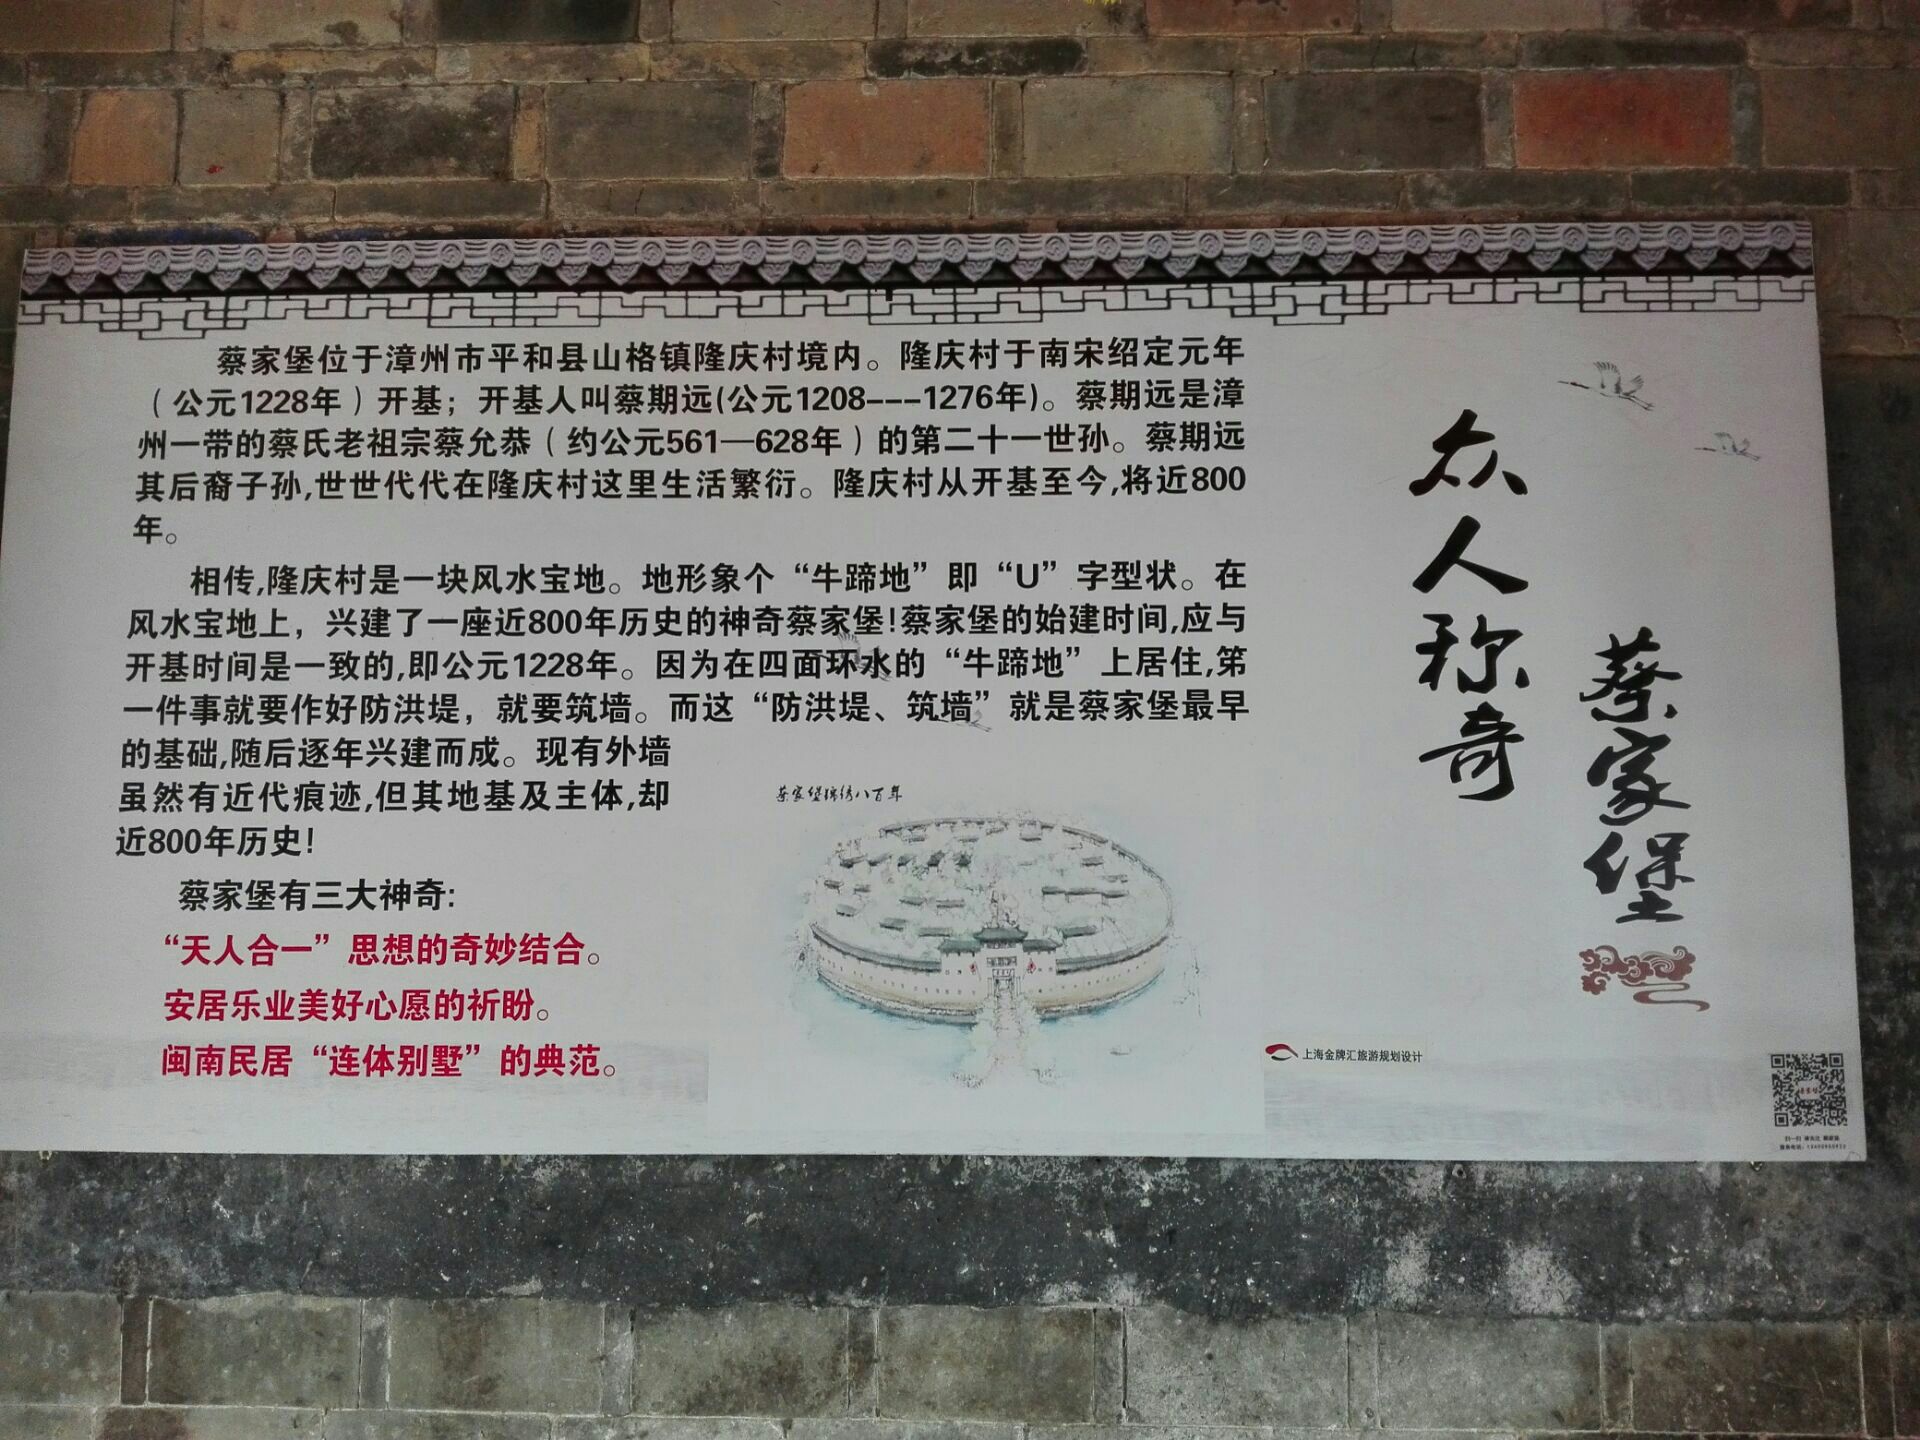 蔡家堡位于漳州市平和县山格镇隆庆村境内。隆庆村于南宋绍定元年
（公元1228年）开基；开基人叫蔡期远(公元1208---1276年)。蔡期远是漳
州一带的蔡氏老祖宗蔡允恭（约公元561—628年）的第二十一世孙。蔡期远
其后裔子孙,世世代代在隆庆村这里生活繁衍。隆庆村从开基至今,将近800
年。
相传,隆庆村是一块风水宝地。地形象个“牛蹄地”即“U”字型状。在
风水宝地上，兴建了一座近800年历史的神奇蔡家堡!蔡家堡的始建时间,应与
开基时间是一致的,即公元1228年。因为在四面环水的“牛蹄地”上居住,笫
一件事就要作好防洪堤，就要筑墙。而这“防洪堤、筑墙”就是蔡家堡最早
的基础,随后逐年兴建而成。现有外墙
虽然有近代痕迹,但其地基及主体,却
近800年历史!
蔡家堡有三大神奇:
“天人合一”思想的奇妙结合。
安居乐业美好心愿的祈盼。
闽南民居“连体别墅”的典范。
蔡家堡锦绣八百年
众人称奇
蔡家堡
上海金牌汇旅游规划设计